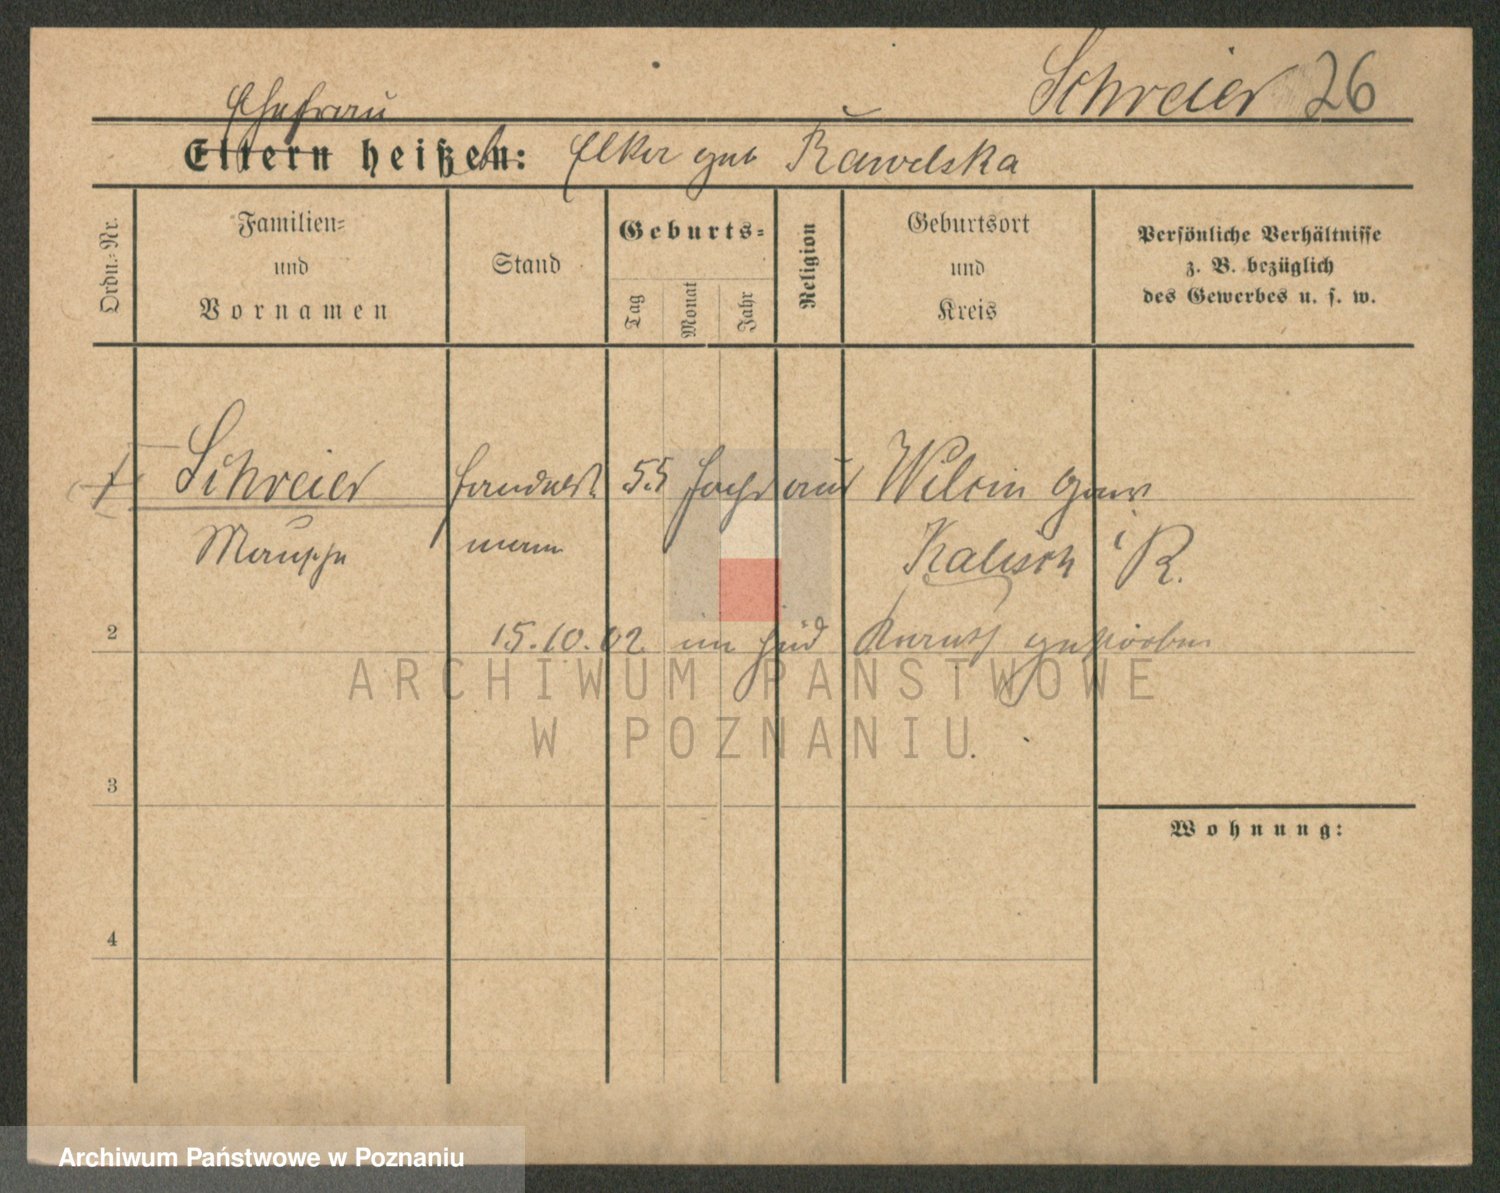 Schreier 26
Ehefrau
Eltern heißen: Elker geb Rawelska
Ordn.-Nr.
Familien-
und
Vornamen
Stand
Geburts-
Tag
Monat
Jahr
Religion
Geburtsort
und
Kreis
Persönliche Verhältnisse
z. B. bezüglich
des Gewerbes u. s. w.
Schreier Handels- 55 Jahr alt Gouv
Mausche mann Kalisch i R.
2 15.10.02 im jüd gestorben
3
4
Wohnung:
ARCHIWUM PAŃSTWOWE
W POZNANIU
Archiwum Państwowe w Poznaniu